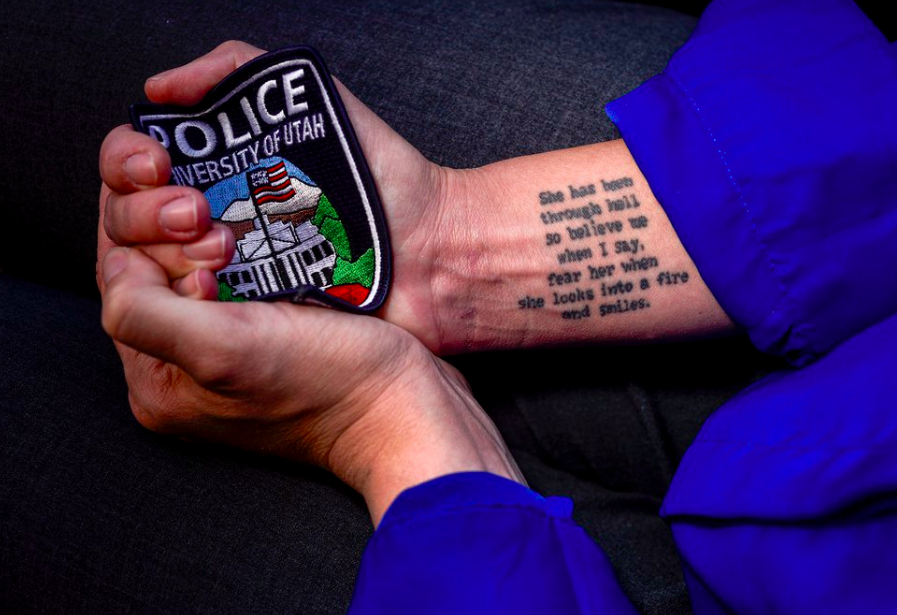 POLICE
UNIVERSITY OF UTAH
She has been
through hell
so believe me
when I say,
fear her when
she looks into a fire
and smiles.